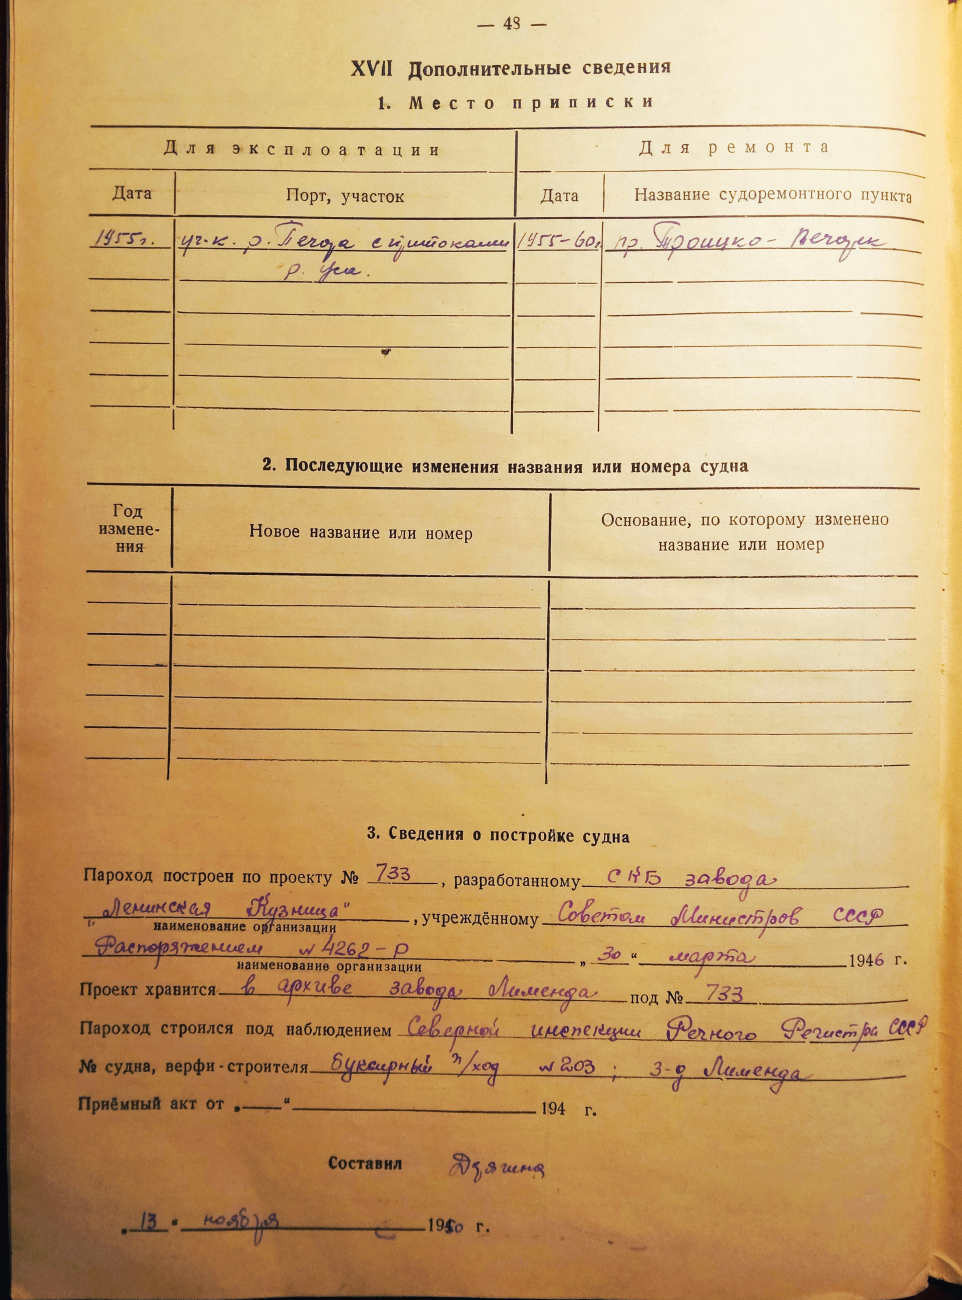 — 48 —
XVII Дополнительные сведения
1. Место приписки
Для эксплоатации Для ремонта
Дата Порт, участок Дата Название судоремонтного пункта
1955г. уч-к. р. Печора с притоками 1955-60г. пр. Троицко-Печорск
р. Уса.
2. Последующие изменения названия или номера судна
Год
измене-
ния
Новое название или номер
Основание, по которому изменено
название или номер
3. Сведения о постройке судна
Пароход построен по проекту № 733, разработанному СКБ завода
„Ленинская Кузница", учреждённому Советом Министров СССР
наименование организации
Распоряжением № 4262-р „30" марта 1946 г.
наименование организации
Проект хранится в архиве завода Лименда под № 733
Пароход строился под наблюдением Северной инспекции Речного Регистра СССР
№ судна, верфи-строителя Буксирный п/ход № 203; з-д Лименда
Приёмный акт от „ " 194 г.
Составил
„13" ноября 1950 г.